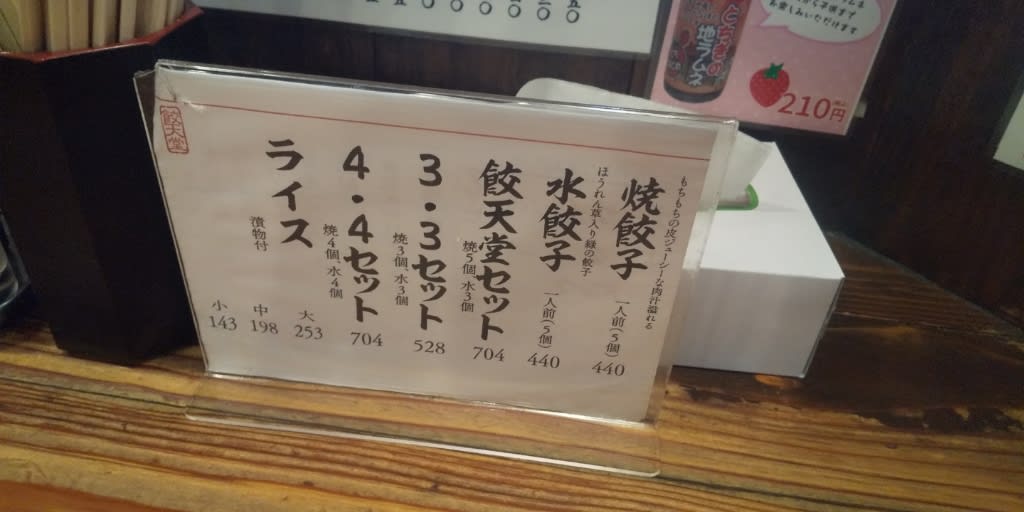 餃天堂
もちもちの皮ジューシーな肉汁溢れる
焼餃子 一人前(5個) 440
ほうれん草入り緑の餃子
水餃子 一人前(5個) 440
餃天堂セット 704
焼5個、水3個
3・3セット 528
焼3個、水3個
4・4セット 704
焼4個、水4個
ライス
漬物付
大 253
中 198
小 143
とちぎの
地ラムネ
お楽しみいただけます
210円